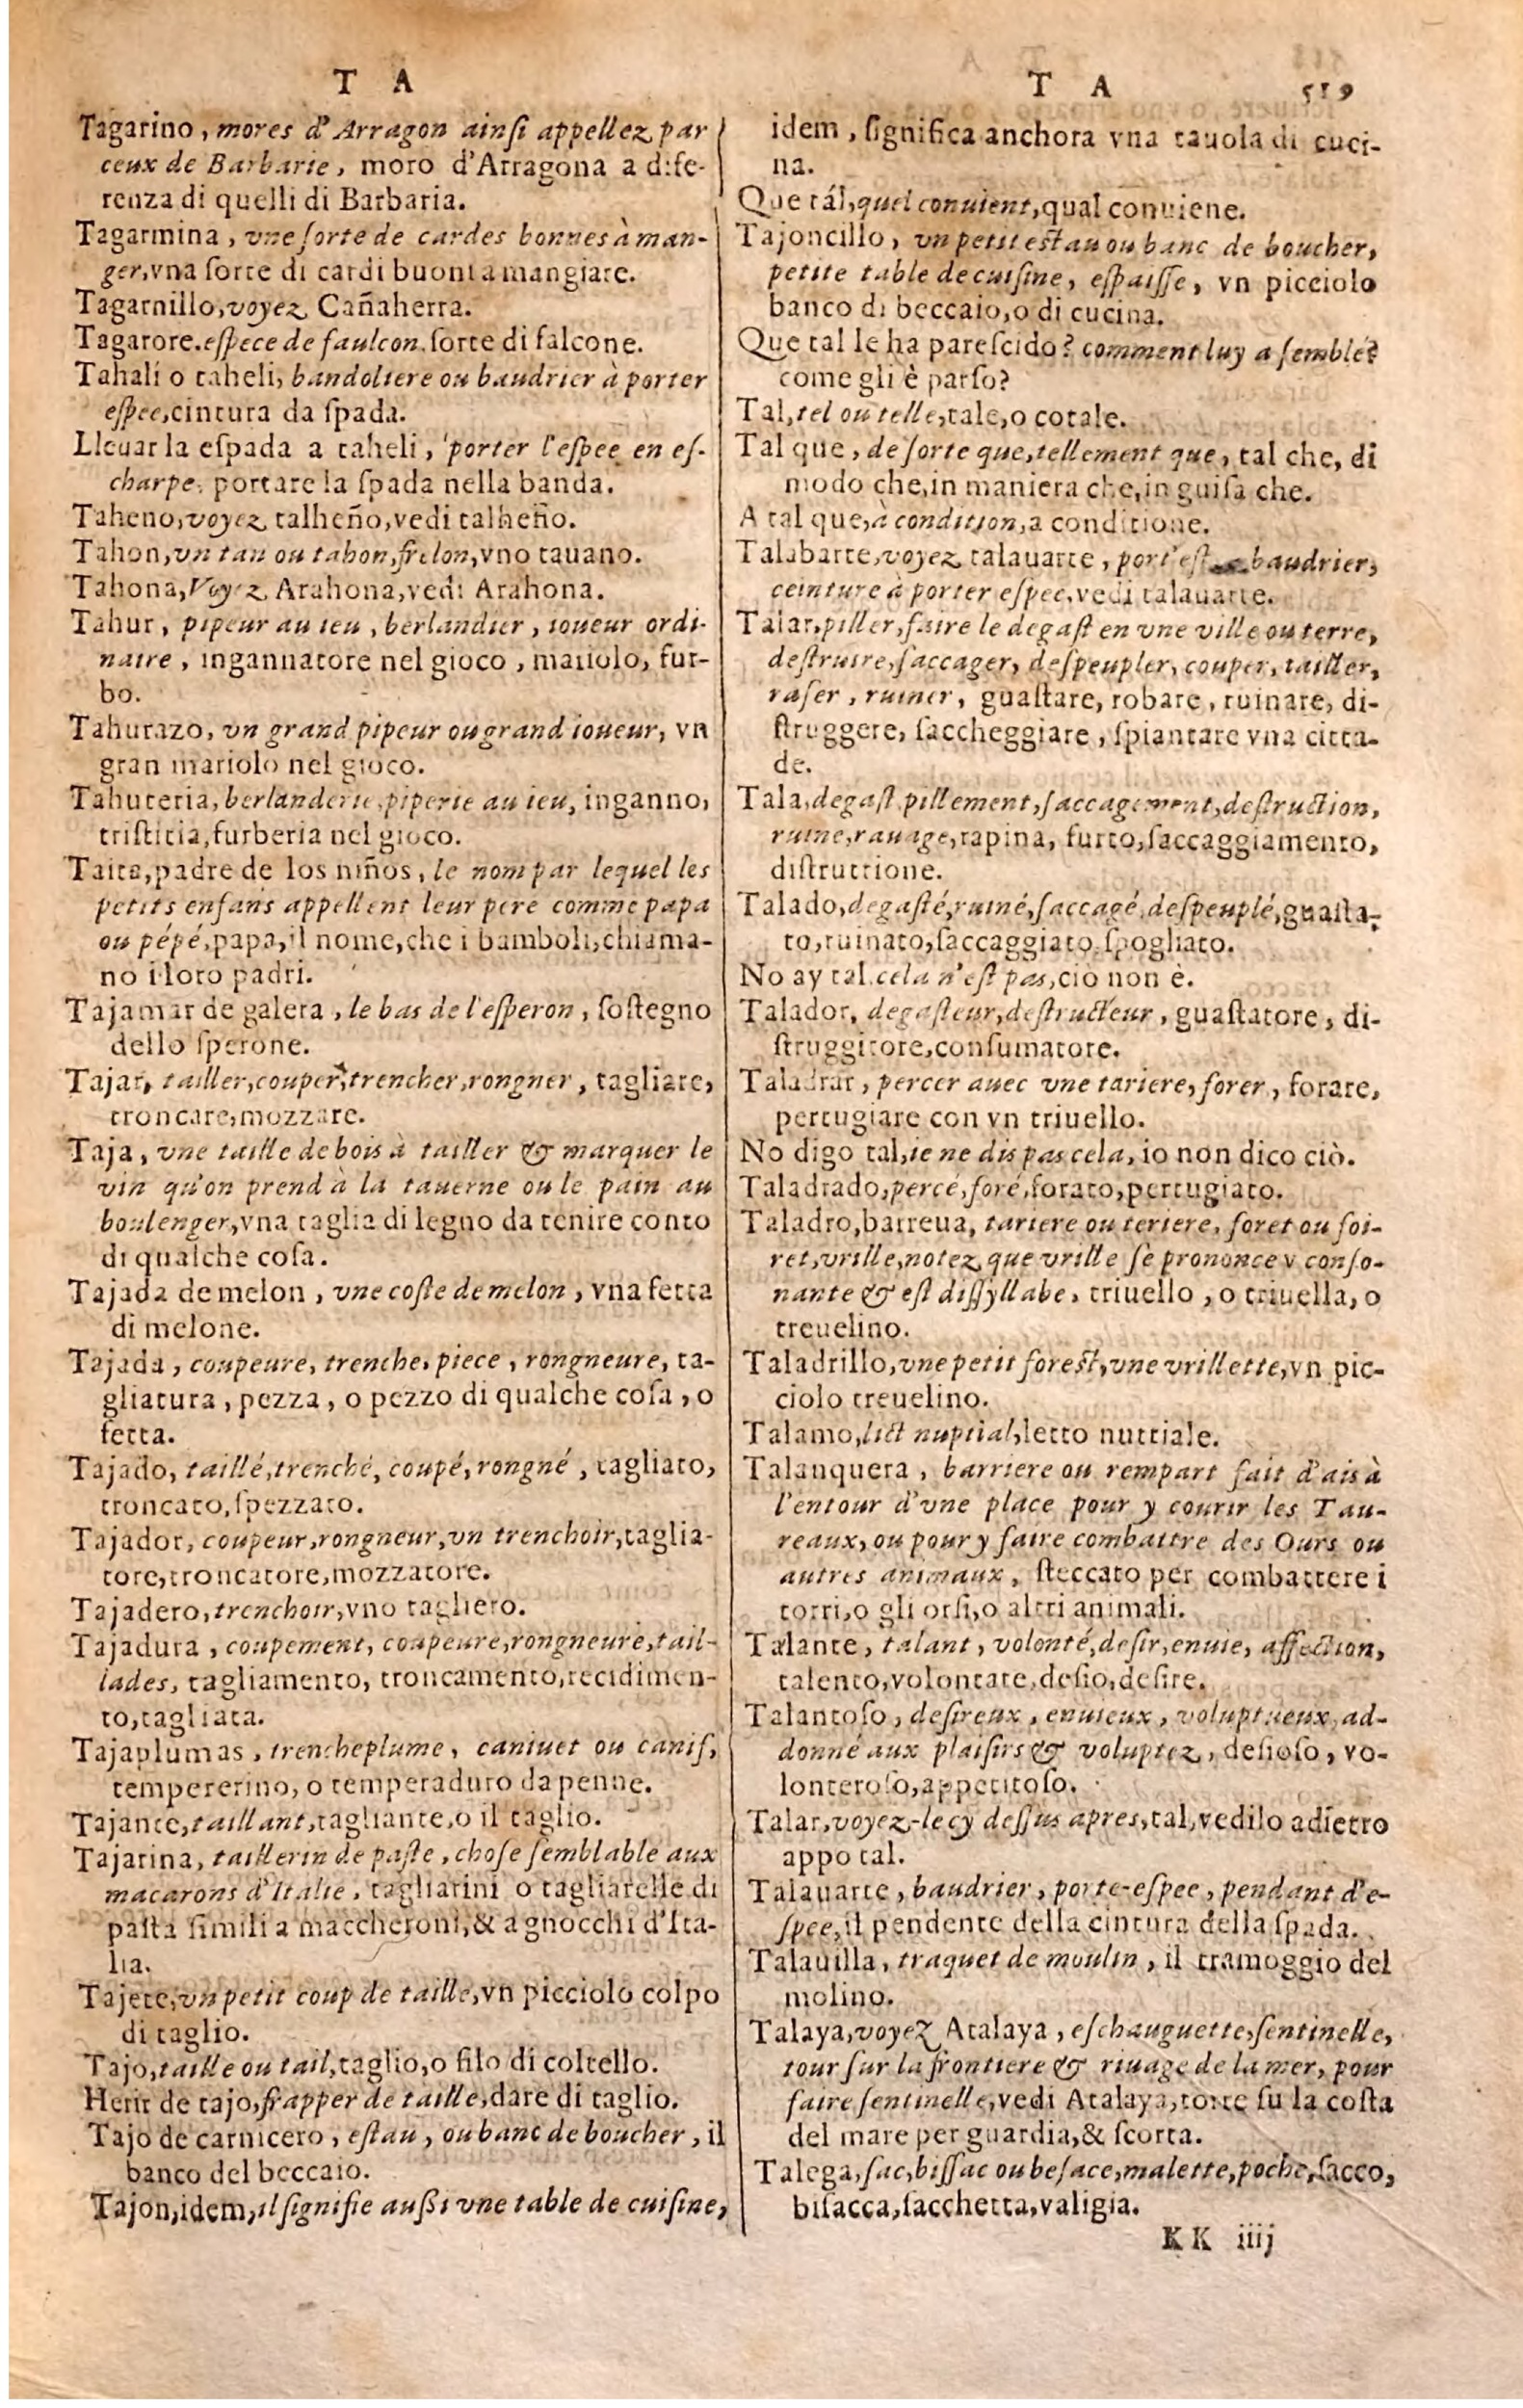 T A
Tagarino, mores d'Arragon ainſi appellez par
ceux de Barbarie, moro d'Arragona a dife-
renza di quelli di Barbaria.
Tagarmina, vne ſorte de cardes bonnes à man-
ger, vna ſorte di cardi buoni a mangiare.
Tagarnillo, voyez Cañaherra.
Tagarore. eſpece de faulcon. ſorte di falcone.
Tahali o taheli, bandoliere ou baudrier à porter
eſpee, cintura da ſpada.
Lleuar la eſpada a taheli, porter l'eſpee en eſ-
charpe. portare la ſpada nella banda.
Taheno, voyez talheño, vedi talheño.
Tahon, vn tan ou tahon, frelon, vno tauano.
Tahona, Voyez Arahona, vedi Arahona.
Tahur, pipeur au ieu, berlandier, ioueur ordi-
naire, ingannatore nel gioco, mariolo, fur-
bo.
Tahurazo, vn grand pipeur ou grand ioueur, vn
gran mariolo nel gioco.
Tahureria, berlanderie, piperie au ieu, inganno,
triſtitia, furberia nel gioco.
Taita, padre de los niños, le nom par lequel les
petits enfans appellent leur pere comme papa
ou pépé, papa, il nome, che i bamboli, chiama-
no i loro padri.
Tajamar de galera, le bas de l'eſperon, ſoſtegno
dello ſperone.
Tajar, tailler, couper, trencher, rongner, tagliare,
troncare, mozzare.
Taja, vne taille de bois à tailler & marquer le
vin qu'on prend à la tauerne ou le pain au
boulenger, vna taglia di legno da tenire conto
di qualche coſa.
Tajada de melon, vne coſte de melon, vna fetta
di melone.
Tajada, coupeure, trenche, piece, rongneure, ta-
gliatura, pezza, o pezzo di qualche coſa, o
fetta.
Tajado, taillé, trenché, coupé, rongné, tagliato,
troncato, ſpezzato.
Tajador, coupeur, rongneur, vn trenchoir, taglia-
tore, troncatore, mozzatore.
Tajadero, trenchoir, vno tagliero.
Tajadura, coupement, coupeure, rongneure, tail-
lades, tagliamento, troncamento, recidimen-
to, tagliata.
Tajaplumas, trencheplume, caniuet ou canif,
tempererino, o temperaduro da penne.
Tajante, taillant, tagliante, o il taglio.
Tajarina, taillerin de paſte, choſe ſemblable aux
macarons d'Italie, tagliarini o tagliarelle di
paſta ſimili a maccheroni, & a gnocchi d'Ita-
lia.
Tajete, vn petit coup de taille, vn picciolo colpo
di taglio.
Tajo, taille ou tail, taglio, o filo di coltello.
Herir de tajo, frapper de taille, dare di taglio.
Tajo de carnicero, eſtau, ou banc de boucher, il
banco del beccaio.
Tajon, idem, il ſignifie außi vne table de cuiſine,
T A 519
idem, ſignifica anchora vna tauola di cuci-
na.
Que tál, quel conuient, qual conuiene.
Tajoncillo, vn petit eſtau ou banc de boucher,
petite table de cuiſine, eſpaiſſe, vn picciolo
banco di beccaio, o di cucina.
Que tal le ha pareſcido? comment luy a ſemblé?
come gli è parſo?
Tal, tel ou telle, tale, o cotale.
Tal que, de ſorte que, tellement que, tal che, di
modo che, in maniera che, in guiſa che.
A tal que, à condition, a conditione.
Talabarte, voyez talauarte, baudrier,
ceinture à porter eſpee, vedi talauarte.
Talar, piller, faire le degaſt en vne ville ou terre,
deſtruire, ſaccager, deſpeupler, couper, tailler,
raſer, ruiner, guaſtare, robare, ruinare, di-
ſtruggere, ſaccheggiare, ſpiantare vna citta-
de.
Tala, degaſt, pillement, ſaccagement, deſtruction,
ruine, rauage, rapina, furto, ſaccaggiamento,
diſtruttione.
Talado, degaſté, ruiné, ſaccagé, deſpeuplé, guaſta-
to, ruinato, ſaccaggiato, ſpogliato.
No ay tal. cela n'eſt pas, ciò non è.
Talador, degaſteur, deſtructeur, guaſtatore, di-
ſtruggitore, conſumatore.
Taladrar, percer auec vne tariere, forer, forare,
pertugiare con vn triuello.
No digo tal, ie ne dis pas cela, io non dico ciò.
Taladrado, percé, foré, forato, pertugiato.
Taladro, barreua, tariere ou teriere, foret ou foi-
ret, vrille, notez que vrille ſe prononce v conſo-
nante & eſt diſſyllabe, triuello, o triuella, o
treuelino.
Taladrillo, vne petit foreſt, vne vrillette, vn pic-
ciolo treuelino.
Talamo, lict nuptial, letto nuttiale.
Talanquera, barriere ou rempart fait d'ais à
l'entour d'vne place pour y courir les Tau-
reaux, ou pour y faire combattre des Ours ou
autres animaux, ſteccato per combattere i
torri, o gli orſi, o altri animali.
Talante, talant, volonté, deſir, enuie, affection,
talento, volontate, deſio, deſire.
Talantoſo, deſireux, enuieux, voluptueux, ad-
donné aux plaiſirs & voluptez, deſioſo, vo-
lonteroſo, appetitoſo.
Talar, voyez-le cy deſſus apres, tal, vedilo adietro
appo tal.
Talauarte, baudrier, porte-eſpee, pendant d'e-
ſpee, il pendente della cintura della ſpada.
Talauilla, traquet de moulin, il tramoggio del
molino.
Talaya, voyez Atalaya, eſchauguette, ſentinelle,
tour ſur la frontiere & riuage de la mer, pour
faire ſentinelle, vedi Atalaya, torre ſu la coſta
del mare per guardia, & ſcorta.
Talega, ſac, biſſac ou beſace, malette, poche, ſacco,
biſacca, ſacchetta, valigia.
KK iiij